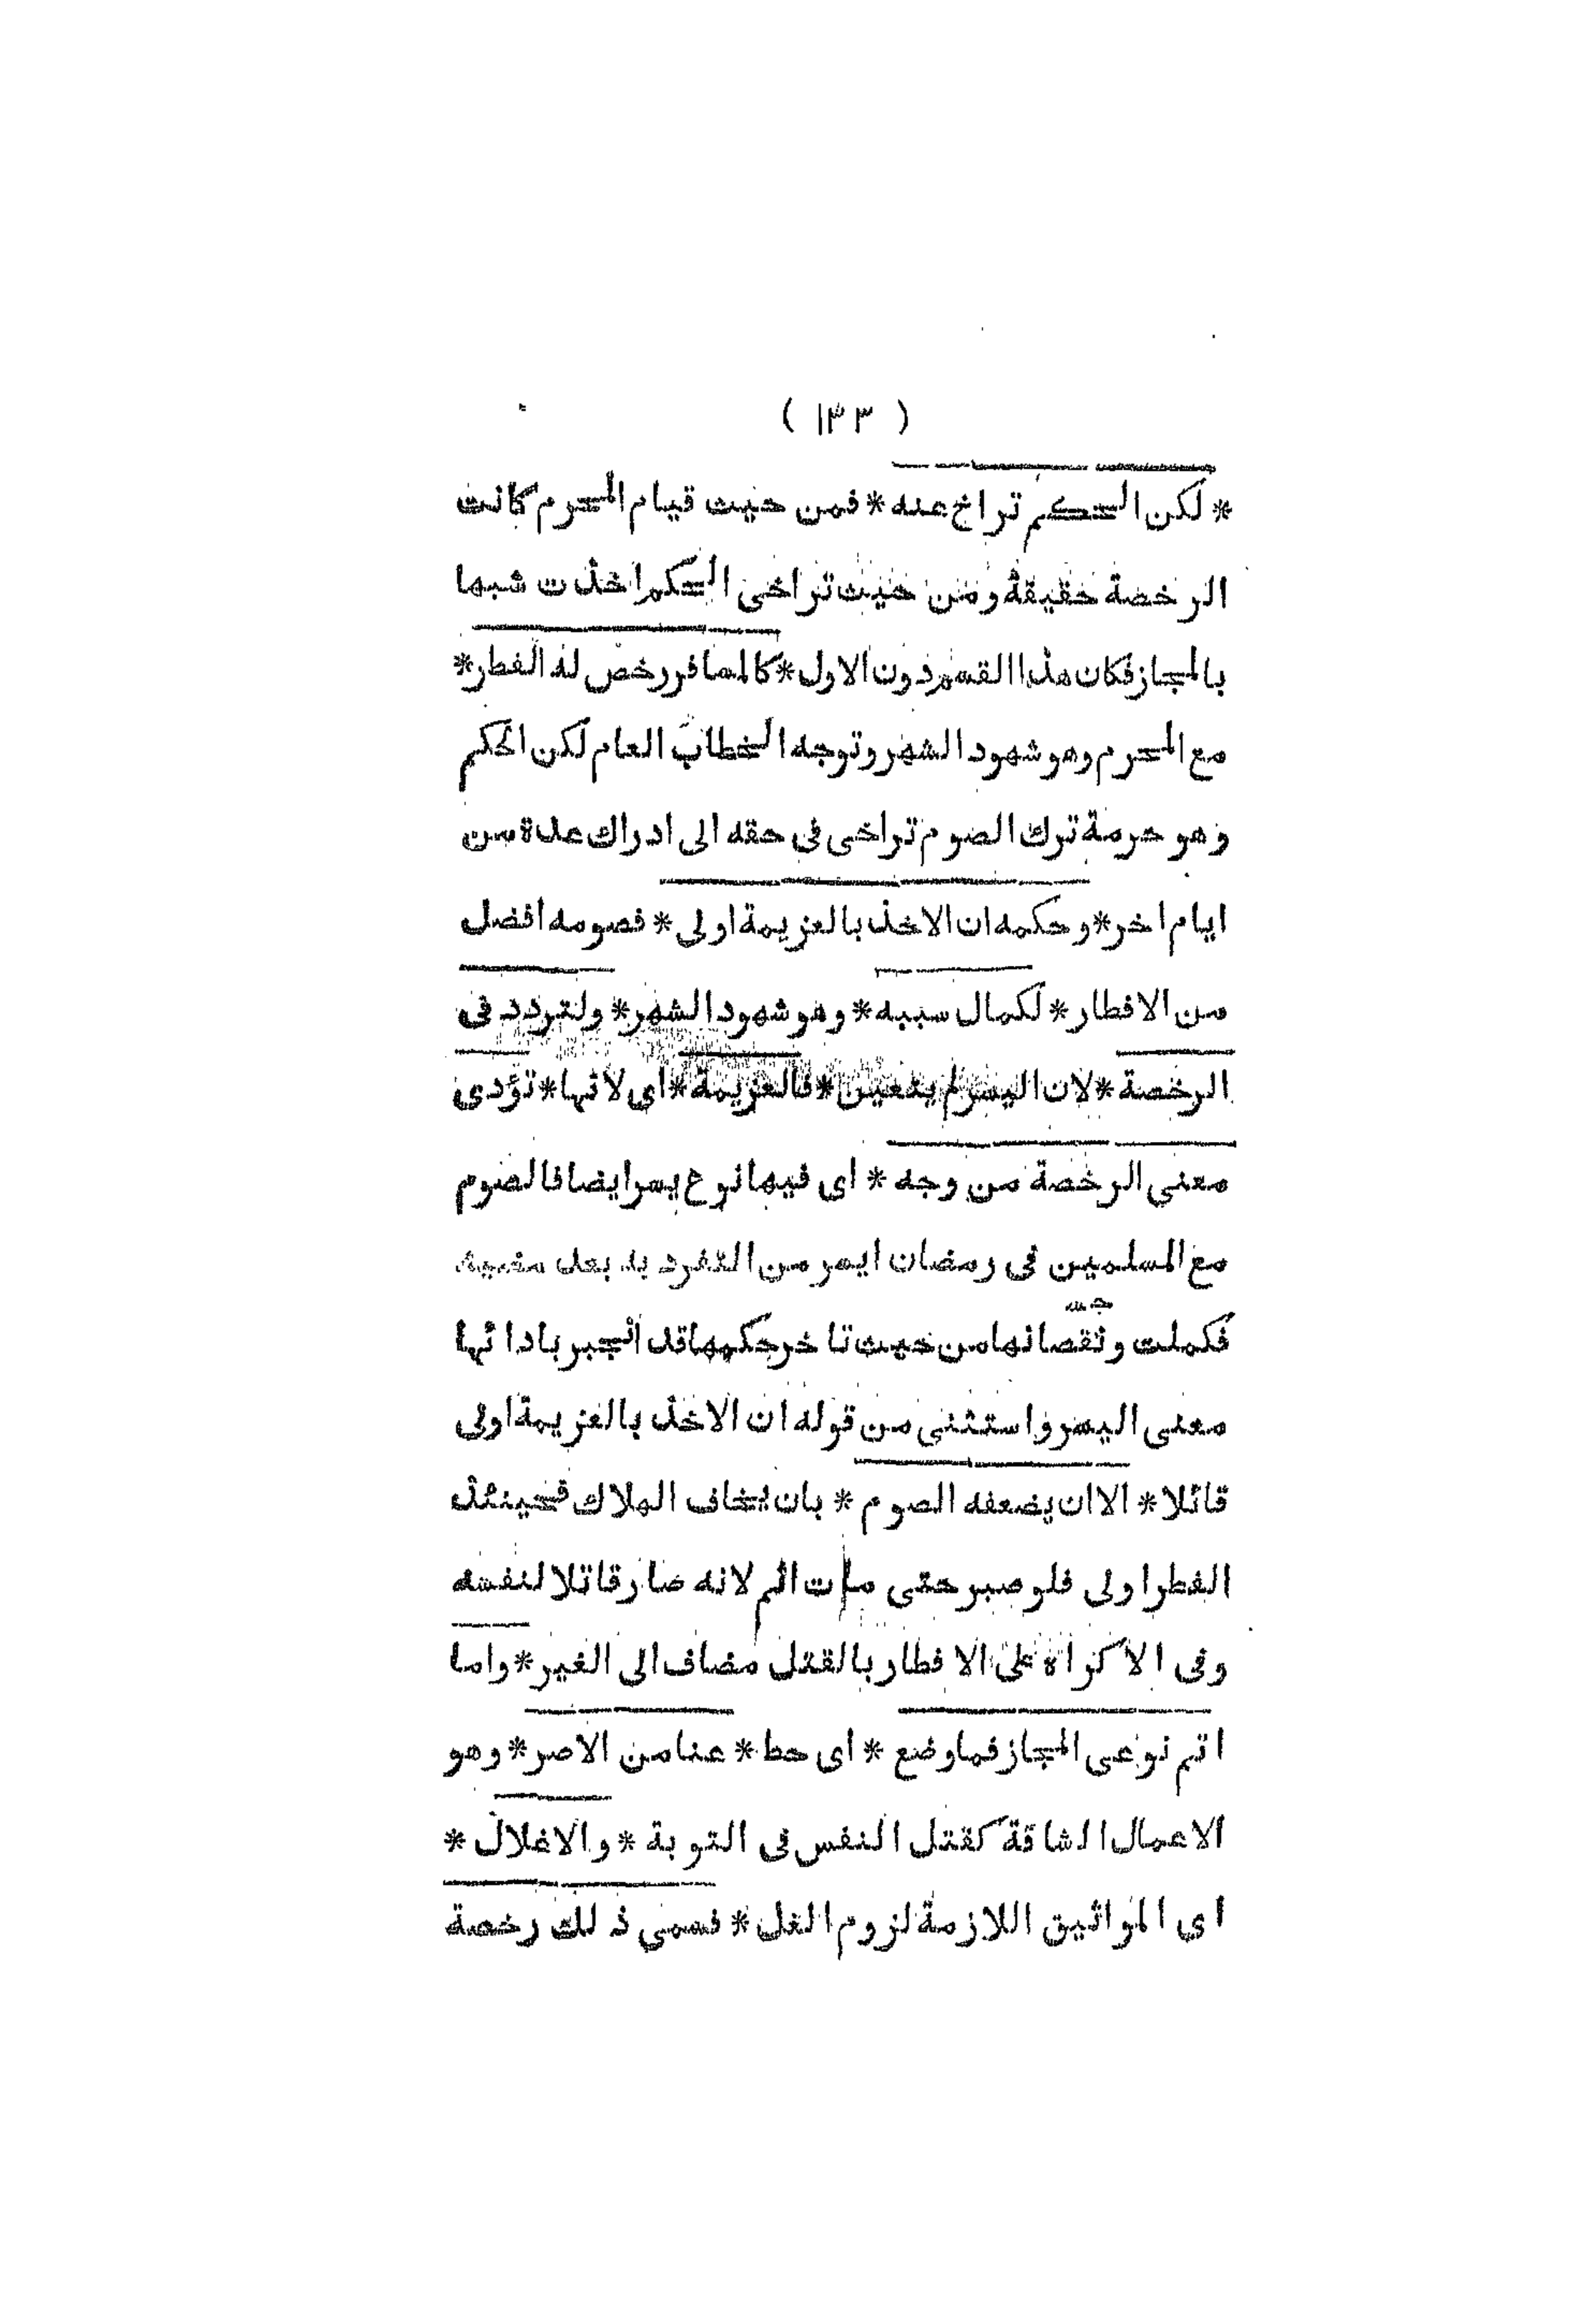 ( ١٣٣ )
* لكن الحكم تراخ عنه * فمن حيث قيام المحرم كانت
الرخصة حقيقة ومن حيث تراخى الحكم اخذت شبها
بالمجاز فكان هذا القسم دون الاول * كالمسافر رخص له الفطر *
مع المحرم وهو شهود الشهر وتوجه الخطاب العام لكن الحكم
وهو حرمة ترك الصوم تراخى فى حقه الى ادراك عدة من
ايام اخر * وحكمه ان الاخذ بالعزيمة اولى * فصومه افضل
من الافطار * لكمال سببه * وهو شهود الشهر * ولتردد فى
الرخصة * لان اليسر لم يتعين * فالعزيمة * اى لانها * تؤدى
معنى الرخصة من وجه * اى فيها نوع يسر ايضا فالصوم
مع المسلمين فى رمضان ايسر من التفرد به بعد مضيه
فكملت ونقصانها من حيث تاخر حكمها قد انجبر بادائها
معنى اليسر واستثنى من قوله ان الاخذ بالعزيمة اولى
قائلا * الا ان يضعفه الصوم * بان يخاف الهلاك فحينئذ
الفطر اولى فلو صبر حتى مات اثم لانه صار قاتلا لنفسه
وفى الاكراه على الافطار بالقتل مضاف الى الغير * واما
اتم نوعى المجاز فما وضع * اى حط * عنا من الاصر * وهو
الاعمال الشاقة كقتل النفس فى التوبة * والاغلال *
اى المواثيق اللازمة لزوم الغل * فسمى ذلك رخصة